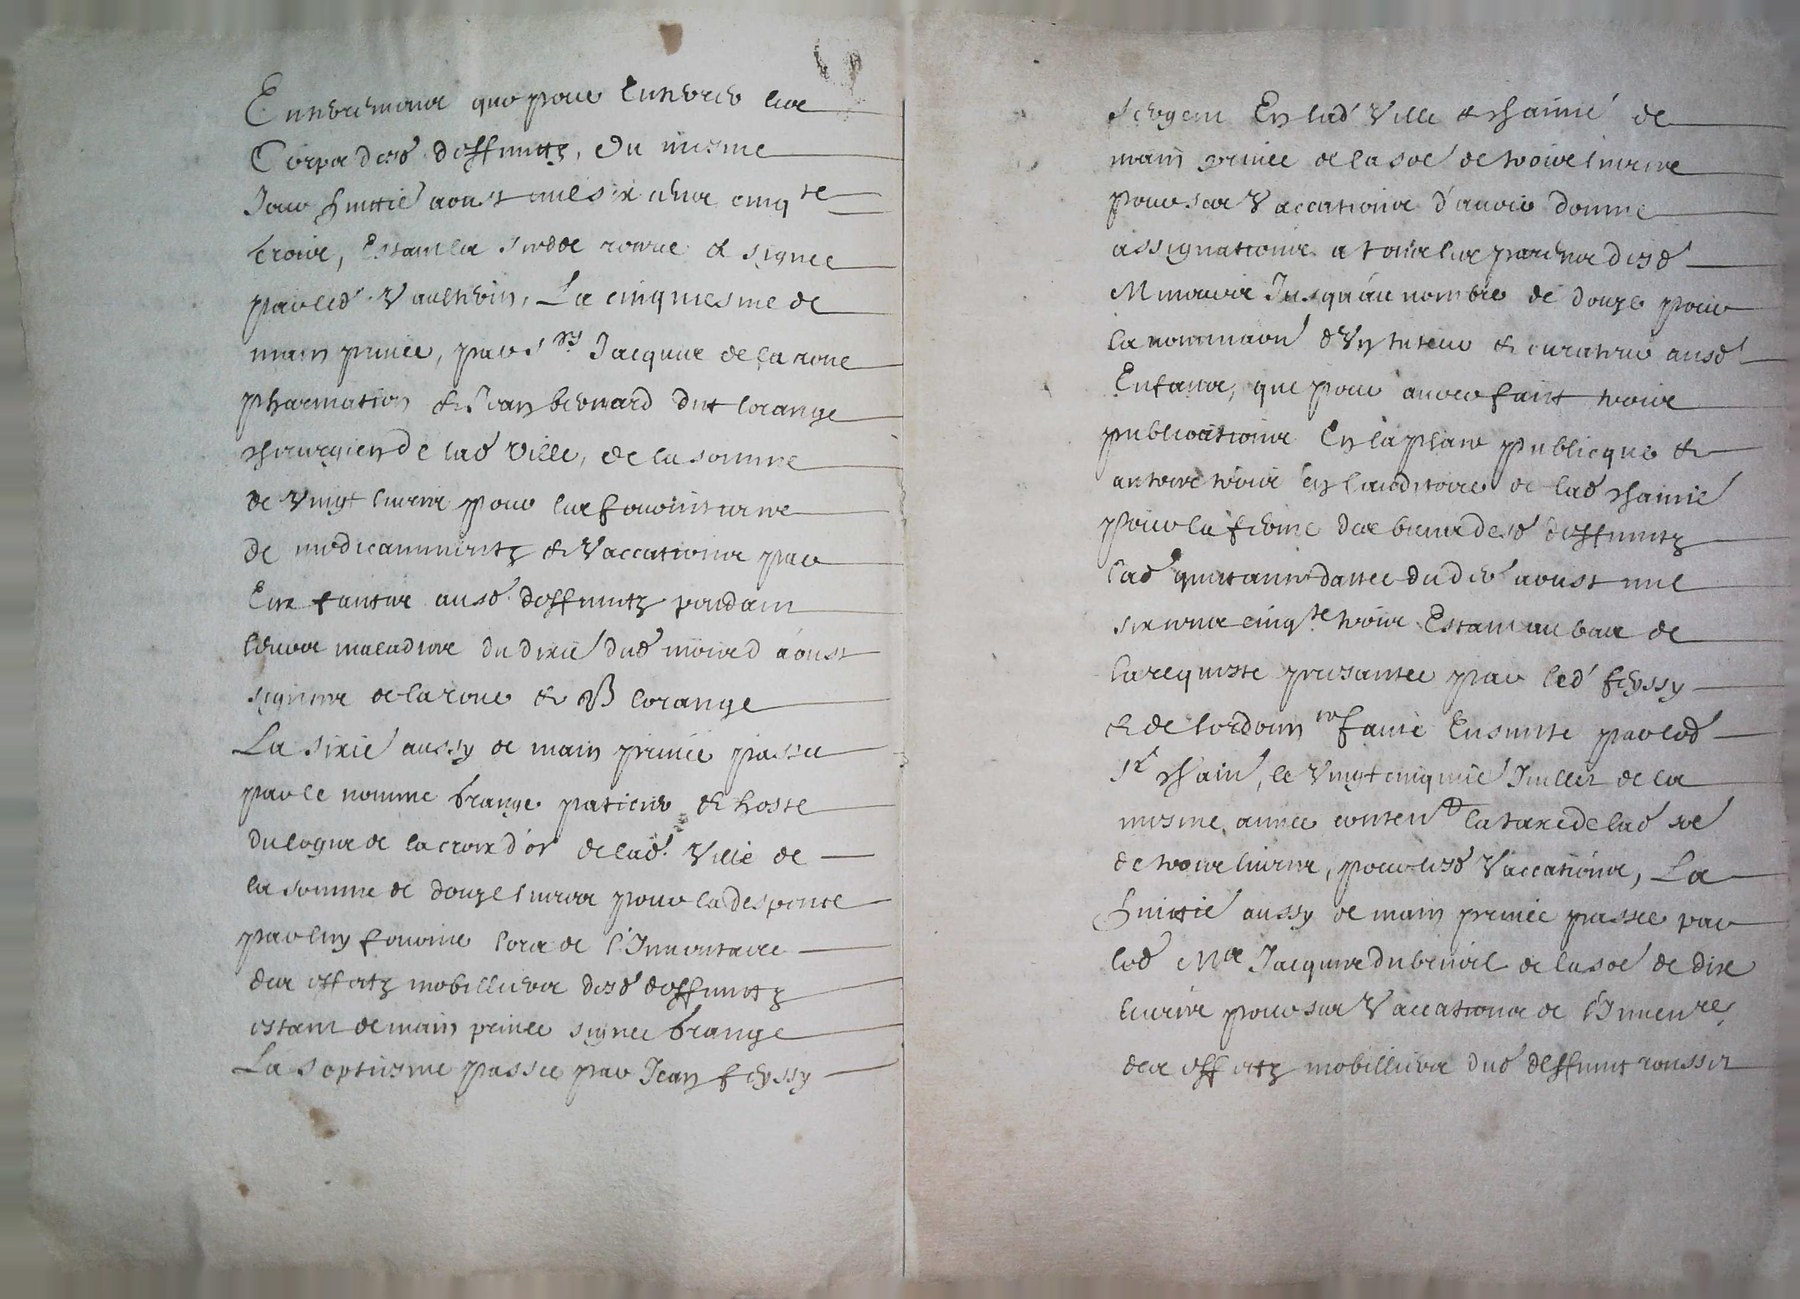 Enterrement que pour Enterer les
Corps desd deffuntz, Du mesme
Jour huittie aoust mil six cens cinqte
trois, Estant la susde receue & signee
par led Vauthrin, La cinquiesme de
main privée, par srs Jacques de la roue
pharmatien & Jean bernard dit lorange
chirurgien de lad Ville, de la somme
de Vingt livres pour les fournitures
de medicammentz & Vaccations par
Eux faittes ausd deffuntz pendant
leurs maladies du dixie dud mois d'aoust
signees de la roue & B lorange
La sixie aussy de main privée passee
par le nomme brange patissier & hoste
du logis de la croix d'or de lad. Ville de
la somme de douze livres pour la despence
par luy fournie lors de l'Inventaire
des effectz mobilliers desd deffuntz
estant de main privee signee brange
La septiesme passee par Jean feyssy
sergent En lad Ville & chainie de
main privee de la soe de trois livres
pour ses Vaccations d'avoir donne
assignations a tous les parens desd
Mineurs Jusqu'au nombre de douze pour
la nominaon d'Un tuteur & curateur ausd
Enfans, que pour avoir faict trois
publications En la place publicque &
autres trois en l'auditoire de lad chainie
pour la ferme des biens desd deffuntz
lad quittance dattee du dix aoust mil
six cens cinqte trois Estant au bas de
la requeste presantee par led feyssy
& de l'ordonnce faite Ensuitte par led
sr chain, le Vingt cinquie Juillet de la
mesme année conten la taxe de lad soe
de trois livres, pour lesd Vaccations, La
huittie aussy de main privée passee par
led Me Jacques dubenoit de la soe de dix
livres pour ses Vaccations de l'Invenre
des effectz mobilliers dud deffunt rousset